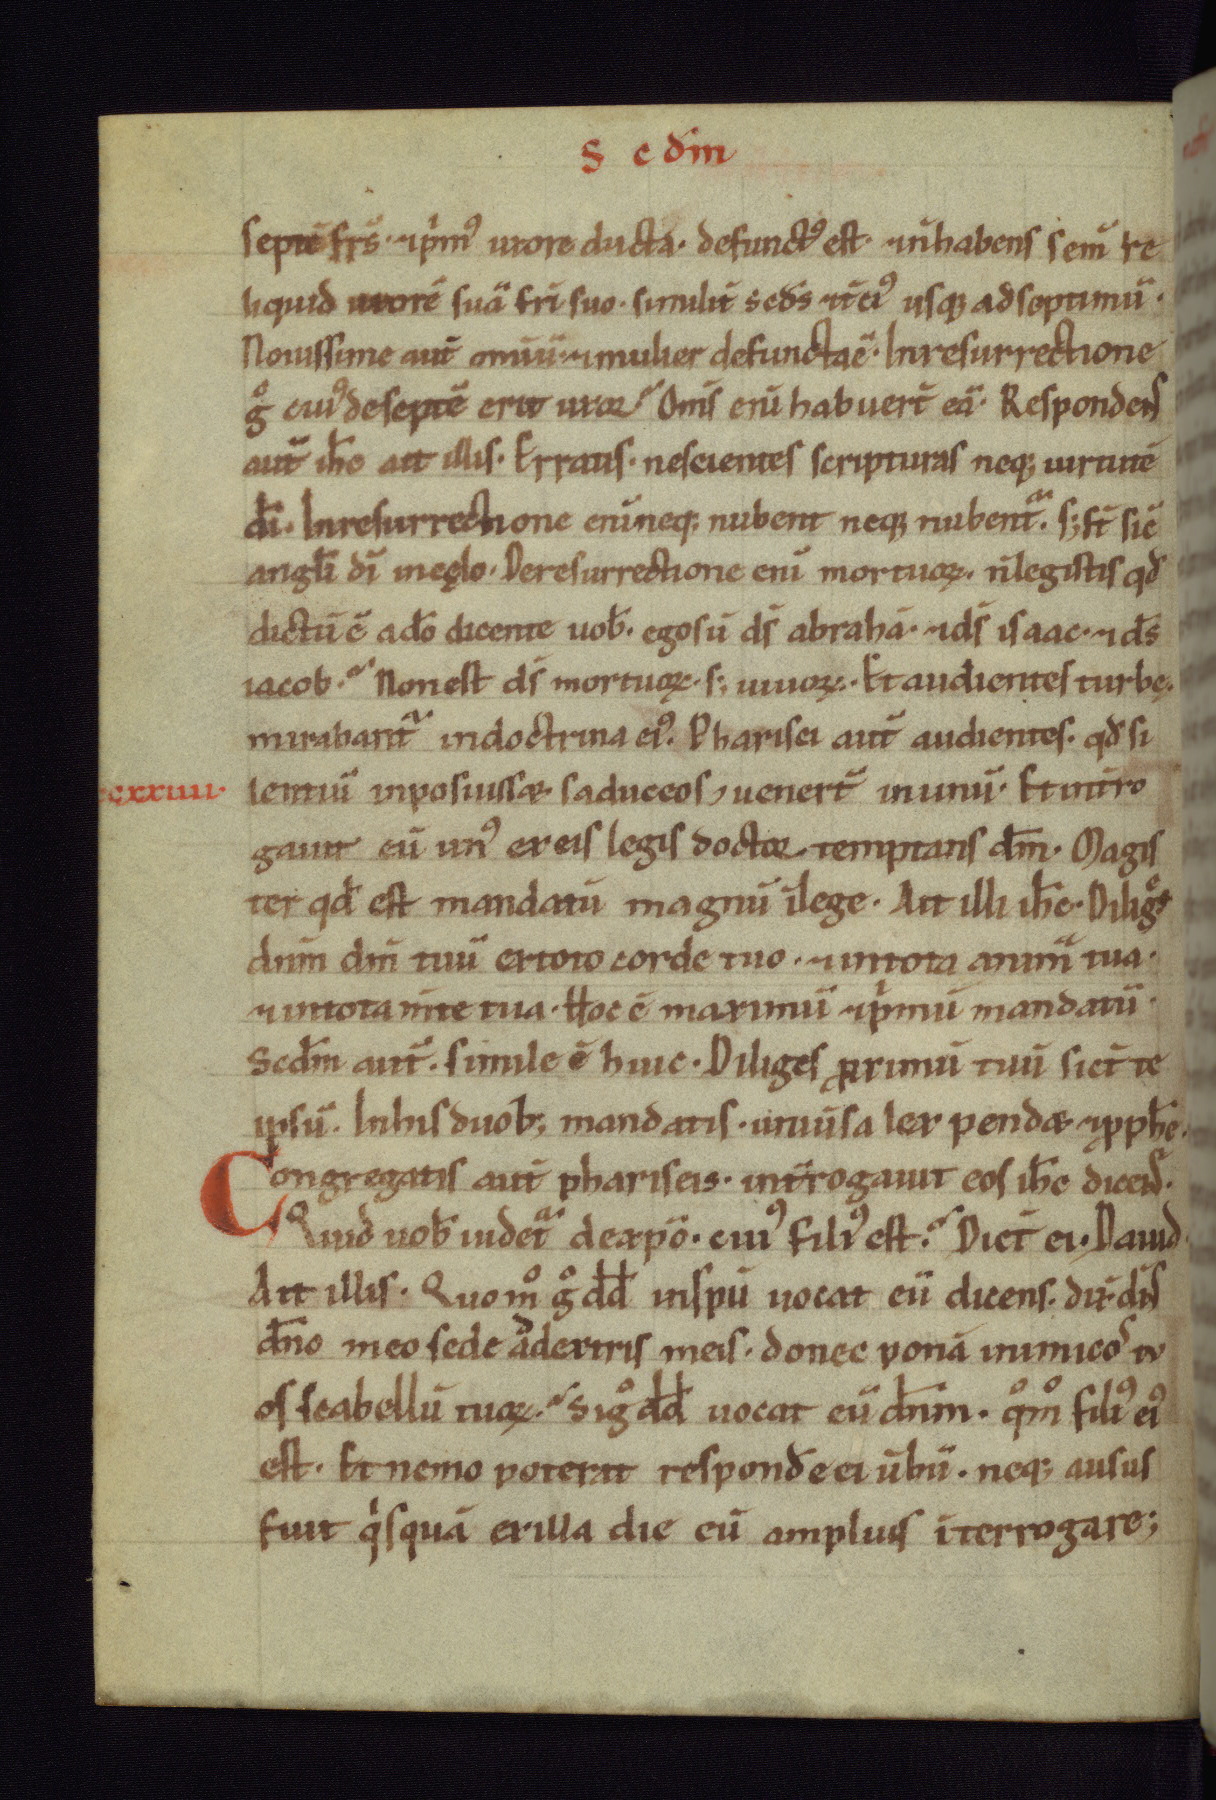 S cdm̄
septē frs̄· ⁊ p̍m᷒ uxore ducta· defunct᷒ est· ⁊ n̄ habens sem̄ re
liquid uxorē suā fr̄i suo· similit̄ scd̄s ⁊ t̄ci᷒ usq; ad septimū·
Nouissime aut̄ omiū· ⁊ mulier defuncta ē· In resurrectione
gͦ cui᷒ de septē erit uxor? Om̄s enī habuert̄ eā· Respondens
aut̄ ih̄c ait illis· Erratis· nescientes scripturas neq; uirtutē
dī· In resurrectione enī neq; nubent neq; nubent᷑· s; st̄ sic̄
angl̄i dī in cęlo· De resurrectione enī mortuoꝝ· n̄ legistis qd̄
dictū ē a dō dicente uob̄· ego sū ds̄ abrahā· ⁊ ds̄ isaac· ⁊ ds̄
iacob? Non est ds̄ mortuoꝝ· s; uiuoꝝ· Et audientes turbę·
mirabant᷑ in doctrina ei᷒· Pharisei aut̄ audientes· qd̄ si
cxxiiii·
lentiū inposuissæ saduceos, uenert̄ in unū· Et int̄ro
gauit eū un᷒ ex eis legis doctor temptans dm̄· Magis
ter qd̄ est mandatū magnū ī lege· Ait illi ih̄c· Diliges
dnm̄ dm̄ tuū ex toto corde tuo· ⁊ in tota anim̄ tua·
⁊ in tota m̄te tua· Hoc ē maximū ⁊ p̍mū mandatū·
Scdm̄ aut̄· simile ē huic· Diliges ꝓximū tuū sict̄ te
ipsū· In his duob; mandatis· uniūsa lex pendæ ⁊ ꝓph̄ę·
Congregatis aut̄ phariseis· int̄rogauit eos ih̄c dicen̄s·
Quid uob̄ uidet᷑ de xp̄o· cui᷒ fili᷒ est? Dict̄ ei· Dauid·
Ait illis· Quomͦ gͦ dd̄ in spū uocat eū dicens· dix̄ dn̄s
dn̄o meo sede a dextris meis· donec ponā inimicos tu
os scabellū tuoꝝ? Si gͦ dd̄ uocat eū dn̄m· qͦmͦ fili᷒ ei᷒
est· Et nemo poterat respond̄e ei ūbū· neq; ausus
fuit q̍squā ex illa die eū amplius īterrogare;